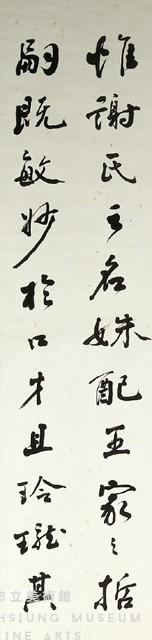 惟謝氏之名姝配王家之哲
嗣既敏妙於口才且玲瓏其
市立美術館
HSIUNG MUSEUM
FINE ARTS